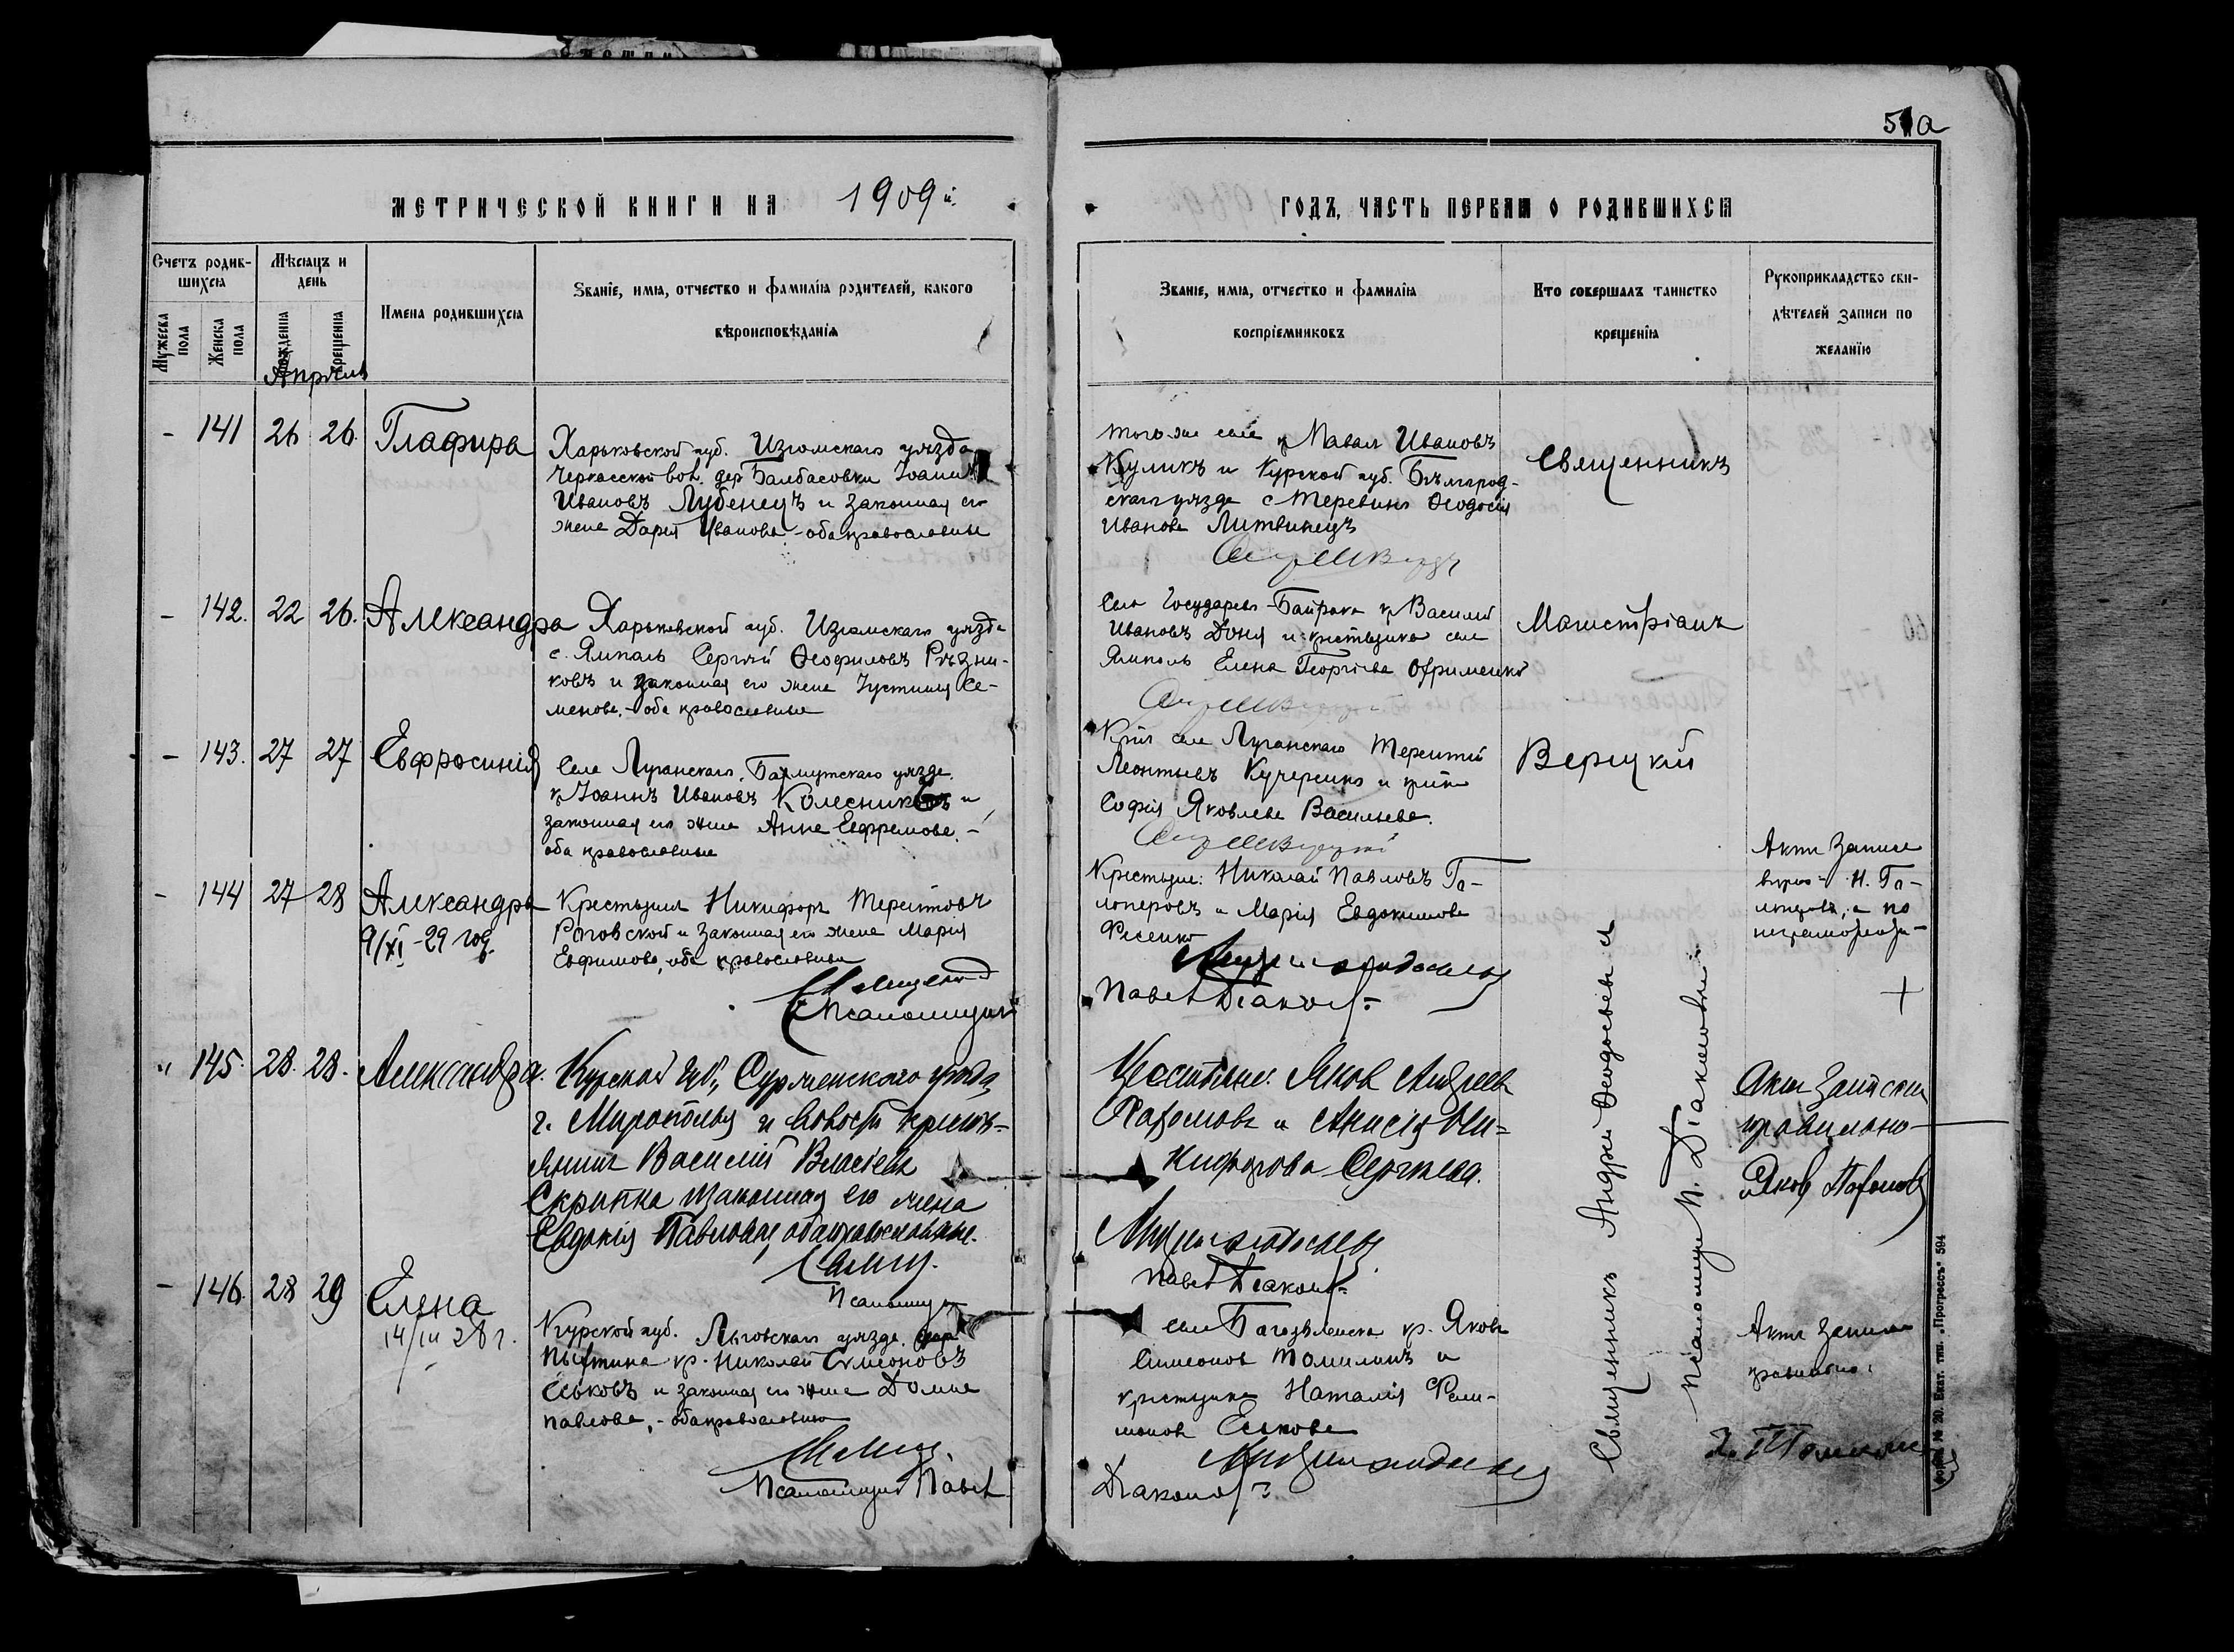 51а
МЕТРИЧЕСКОЙ КНИГИ НА 1909 й.
ГОДЪ, ЧАСТЬ ПЕРВАЯ О РОДИВШИХСЯ
Счетъ родившихся
Мужеска пола
Женска пола
Мѣсяцъ и день
рожденія
крещенія
Имена родившихся
Званіе, имя, отчество и фамилія родителей, какого
вѣроисповѣданія
Званіе, имя, отчество и фамилія
воспріемниковъ
Кто совершалъ таинство
крещенія
Рукоприкладство сви-
дѣтелей записи по
желанію
Апрѣль
- 141 26 26. Глафира
Харьковской губ. Изюмскаго уѣзда
Черкасской вол. дер Балбасовки Іоаннъ
Ивановъ Лубенецъ и законная его
жена Дарія Иванова - оба православные
того-же села Иванов
Куликъ и Курской губ. Бѣлгород-
скаго уѣзда с Теревино Ѳеодосія
Иванова Литвинецъ
Священникъ
- 142. 22 26. Александра
Харьковской губ. Изюмскаго уѣзда
с. Ямполь Сергѣй Ѳеофиловъ Рѣзни-
ковъ и законная его жена Іустинія Се-
менова, - оба православные
Села Государев-Байрака кр Василій
Ивановъ Доня и крестьянка села
Ямполь Елена Георгіева Офрименко
Магистріанъ
- 143. 27 27 Евфросинія
Села Луганскаго, Бахмутскаго уѣзда
кр Іоаннъ Ивановъ Колесниковъ и
законная его жена Анна Евфремова, -
оба православные
Кр-нъ села Луганскаго Терентій
Леонтьевъ Кучеренко и
Софія Яковлева Васильева.
Верецкій
- 144 27 28 Александра
9/XI - 29 год.
Крестьянинъ Никифоръ Терентіовъ
Роговской и законная его жена Марія
Евфимова, оба православные
Псаломщикъ
Крестьяне: Николай Павловъ Га-
лаперовъ и Марія Евдокимова
Фесенко
Павелъ Діаконовъ
Актъ записи
вѣрно - Н. Га-
а по
неграмотности -
+
" 145. 28. 28. Александра.
Курской губ., Суджанскаго уѣзда,
г. Мирополья и волости крестья-
янинъ Василій Власіевъ
Скрипка и законная его жена
Евдокія Павлова, оба православные.
Псаломщикъ
Крестьяне: Яковъ Андреевъ
и Анисія Ни-
кифорова Сергѣева.
Павелъ Діаконовъ
Актъ записи
правильно -
Яковъ
- 146. 28 29 Елена
14/III 28 г.
Курской губ. Льговскаго уѣзда, дер
кр. Николай Симеоновъ
Еськовъ и законная его жена Домна
Павлова, - оба православные
Псаломщикъ Павелъ
села Богоявленска кр. Яковъ
Симеоновъ Томилинъ и
крестьянка Наталія Фили-
монова Еськова
Діаконовъ
Актъ записи
правильно:
Я. Томилинъ
Священникъ Андрей Ѳеодосьевъ
Псаломщикъ П. Діаконовъ
Форма № 20. Екат. тип. „Прогрессъ“ 594